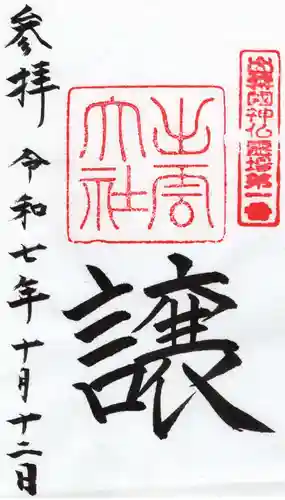 出雲國神仏霊場第一番
出雲
大社
譲
参拝 令和七年十月十二日